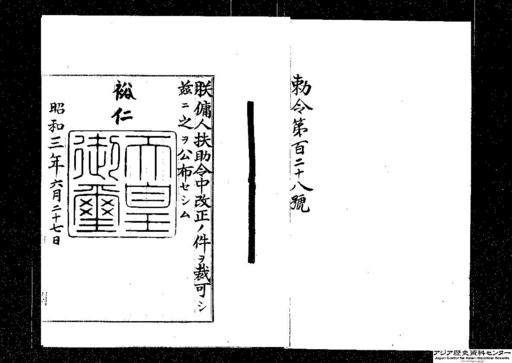 勅令第百二十八號
朕傭人扶助令中改正ノ件ヲ裁可シ
茲ニ之ヲ公布セシム
裕仁
天皇
御璽
昭和三年六月二十七日
アジア歴史資料センター
Japan Center for Asian Historical Records